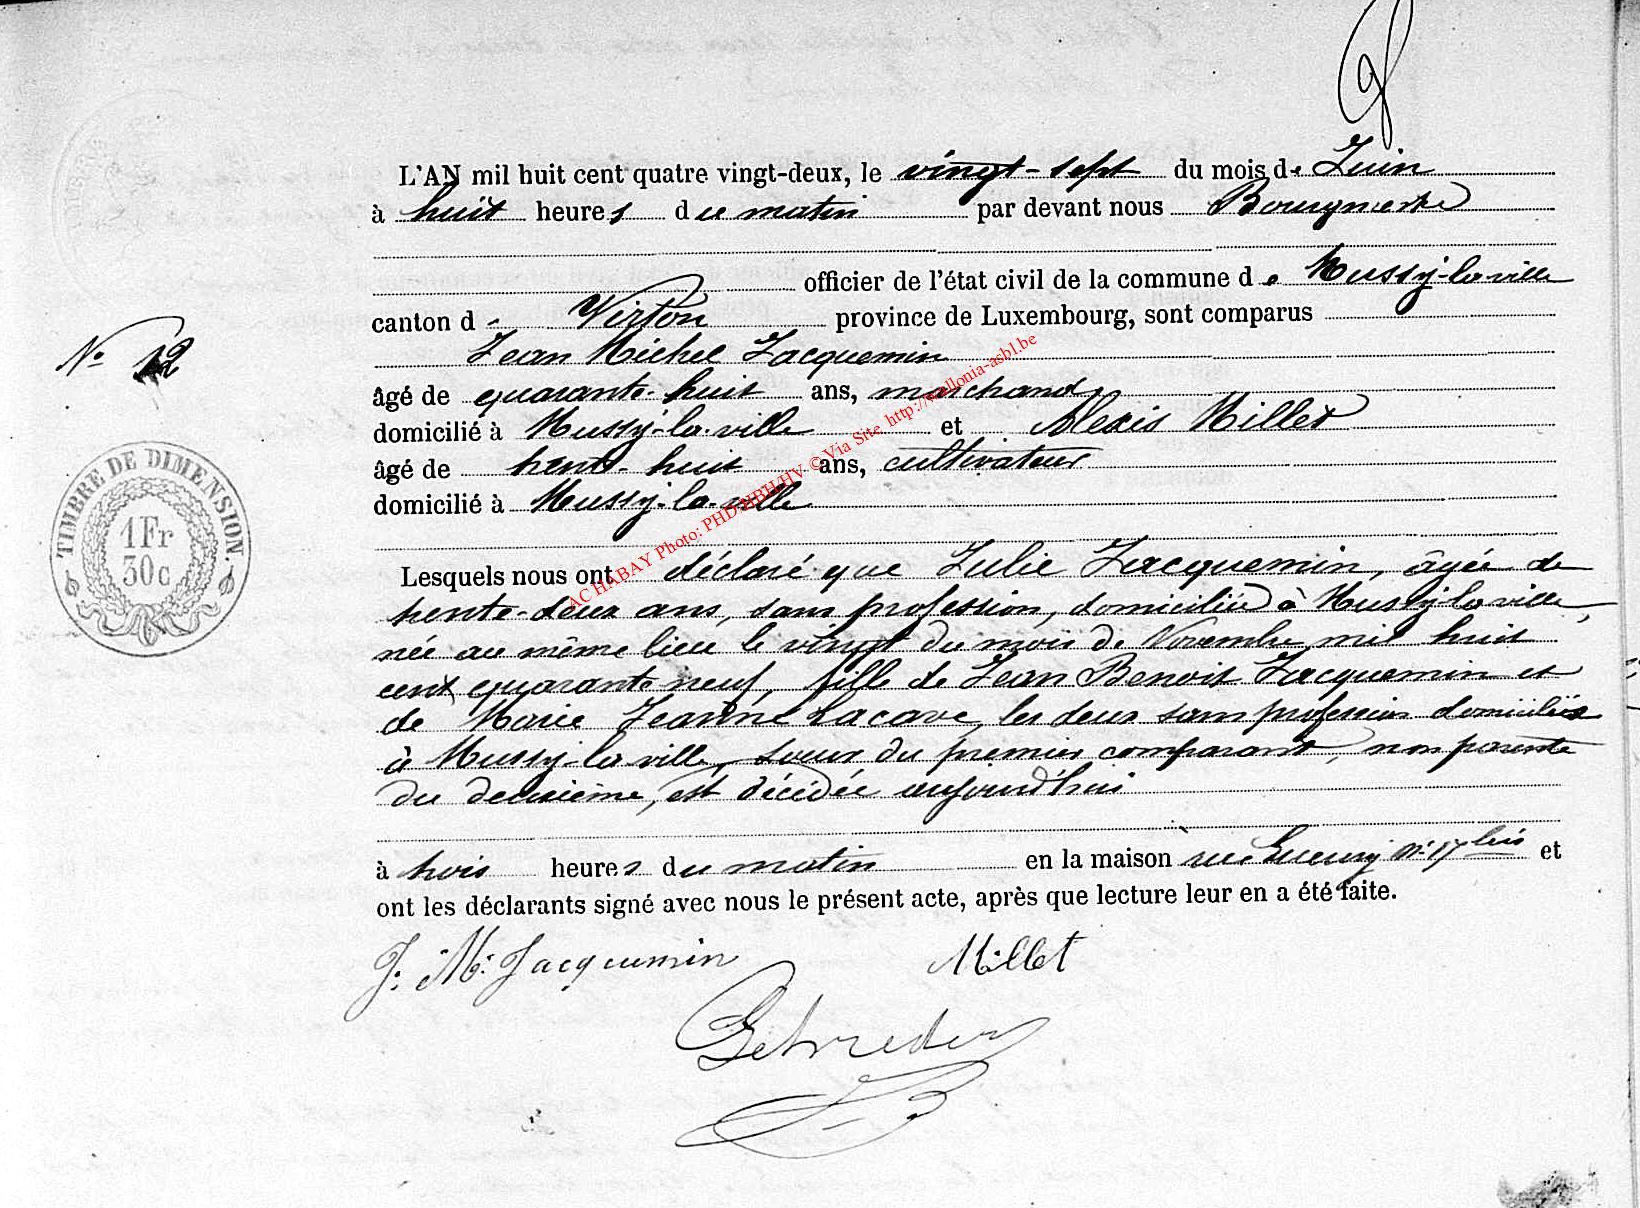 L'AN mil huit cent quatre vingt-deux, le vingt-sept du mois de Juin
à huit heures du matin par devant nous Bourgmestre
officier de l'état civil de la commune de Mussy-la-ville
canton de Virton province de Luxembourg, sont comparus
Jean Michel Jacquemin
N° 12
âgé de quarante-huit ans, marchand
domicilié à Mussy-la-ville et Alexis Millet
âgé de trente-huit ans, cultivateur
domicilié à Mussy-la-ville
TIMBRE DE DIMENSION.
1 Fr
30 c
Lesquels nous ont déclaré que Julie Jacquemin, âgée de
trente-deux ans, sans profession, domiciliée à Mussy-la-ville,
née au même lieu le vingt du mois de Novembre mil huit
cent quarante neuf, fille de Jean Benoit Jacquemin et
de Marie Jeanne Lacave, les deux sans profession domiciliés
à Mussy-la-ville, soeur du premier comparant, non parente
du deuxième, est décédée aujourd'hui
à trois heures du matin en la maison rue N° 17 bis et
ont les déclarants signé avec nous le présent acte, après que lecture leur en a été faite.
J. M. Jacquemin Millet
AC HABAY Photo: PHD/HBH/HV © Via Site http://wallonia-asbl.be